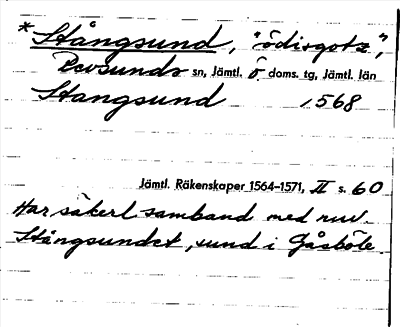 * Stångsund, "ödisgots",
Revsunds sn, Jämtl. Ö doms. tg, Jämtl. län
Stangsund 1568
Jämtl. Räkenskaper 1564–1571, II s. 60
Har säkerl. samband med nuv.
Stångsundet, sund i Gåsböle